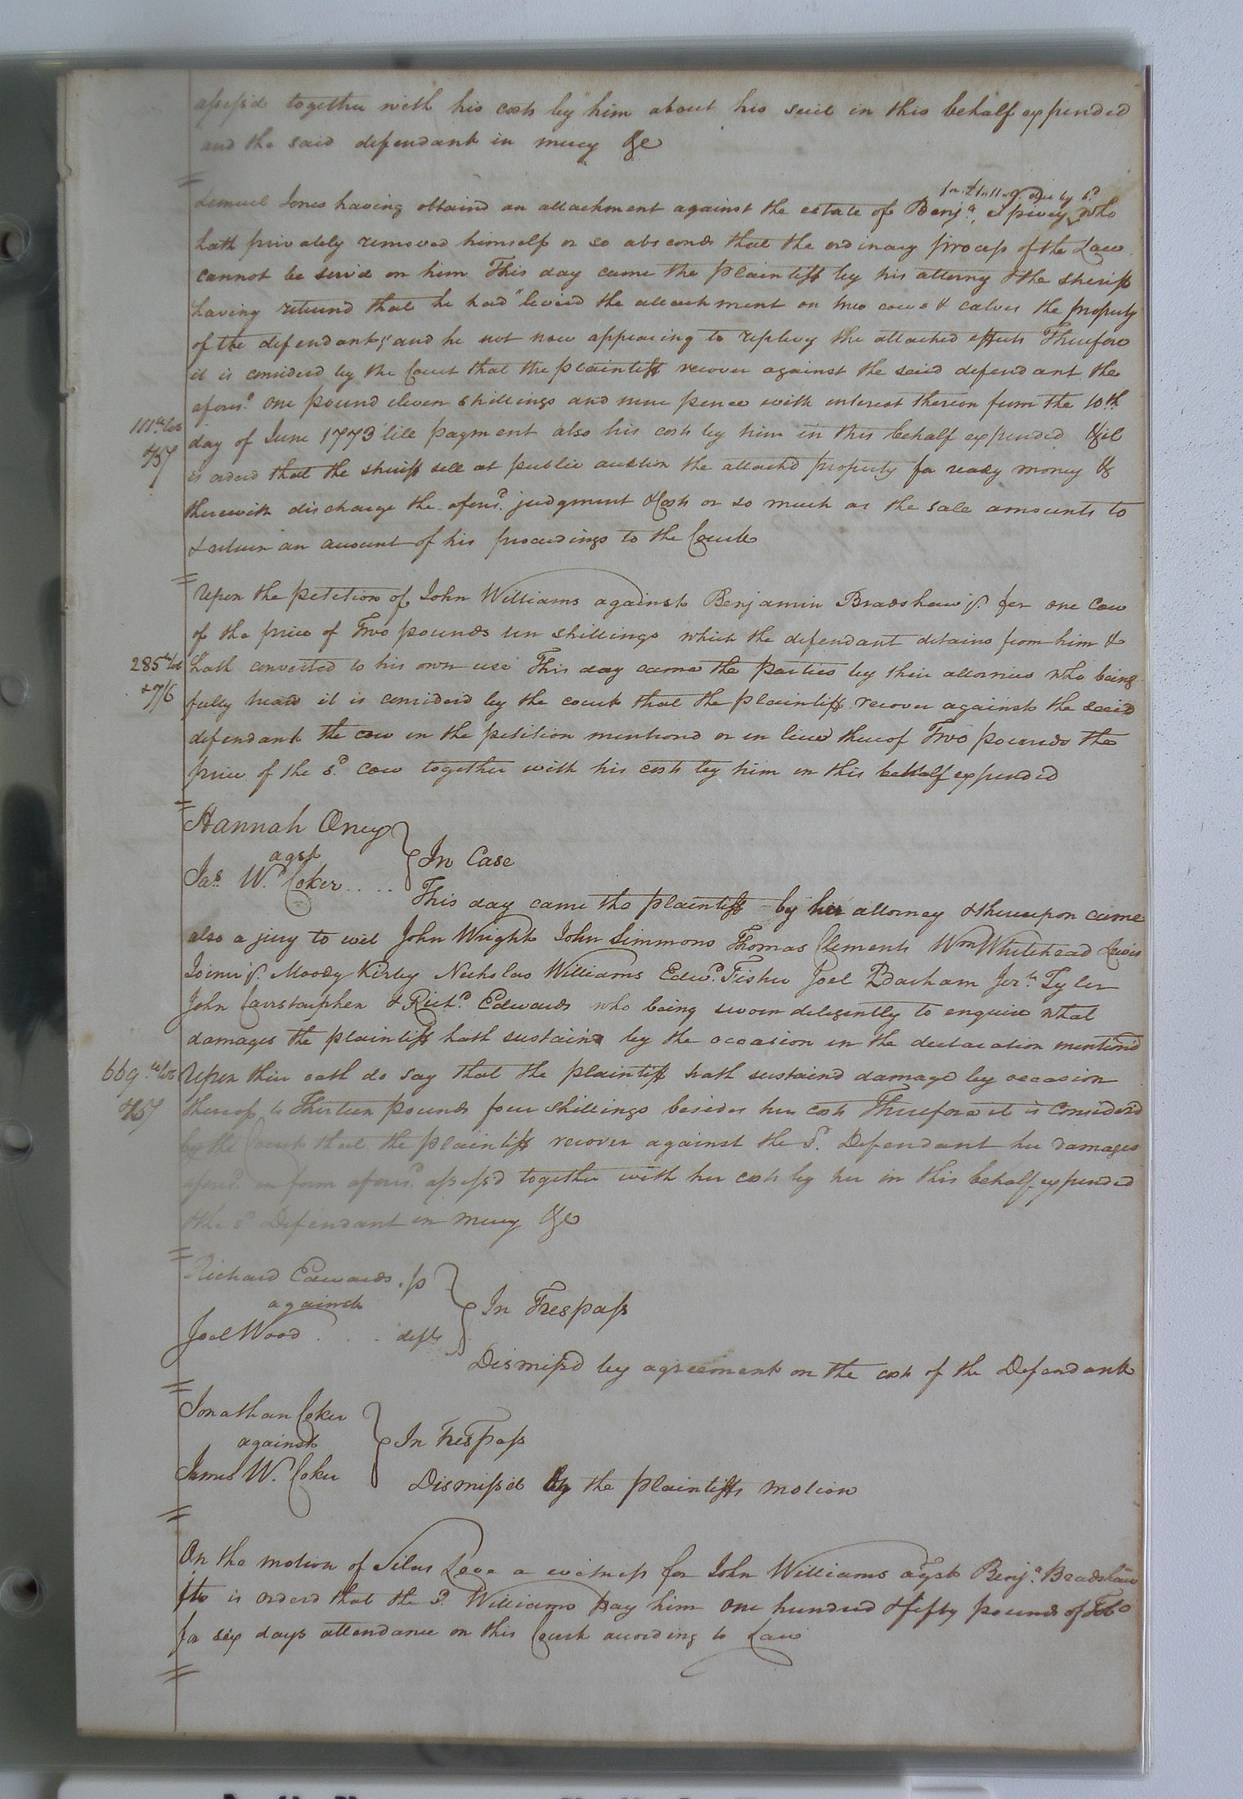 assess'd together with his costs by him about his suit in this behalf expended
and the said defendant in mercy &c
Lemuel Jones having obtaind an attachment against the estate of Benja. Spivey who
for £1..11..9 due by sd.
hath privately removed himself or so absconds that the ordinary process of the Law
cannot be serv'd on him This day came the plaintiff by his attorny & the sheriff
having returnd that he had levied the attachment on two cows & calves the property
of the defendant, and he not now appearing to replevy the attached effects Therefore
it is considerd by the Court that the plaintiff recover against the said defendant the
aforsd. one pound eleven shillings and nine pence with interest thereon from the 10th
111 lbs
day of June 1773 till payment also his costs by him in this behalf expended & it
is orderd that the sheriff sell at public auction the attachd property for ready money &
therewith discharge the aforsd. judgment & Costs or so much as the sale amounts to
& return an account of his proceedings to the Court
Upon the petition of John Williams against Benjamin Bradshaw for one Cow
of the price of Two pounds ten shillings which the defendant detains from him &
285 lbs
hath converted to his own use This day came the parties by their attornies who being
& 7/6
fully heard it is considerd by the court that the plaintiff recover against the said
defendant the cow in the petition mentiond or in lieu thereof Two pounds the
price of the sd. cow together with his costs by him in this behalf expended
Hannah Oney
agst
In Case
Jas. W. Coker
This day came the plaintiff by her attorney & thereupon came
also a jury to wit John Wright John Simmons Thomas Clements Wm Whitehead Lewis
Joiner Moody Kirby Nicholas Williams Edwd. Fisher Joel Barham Jer. Tyler
John Carrstarphen & Richd. Edwards who being sworn diligently to enquire what
damages the plaintiff hath sustaind by the occasion in the declaration mentiond
669 lbs
Upon their oath do say that the plaintiff hath sustaind damage by occasion
thereof to Thirteen pounds four shillings besides her costs Therefore it is Considerd
by the Court that the plaintiff recover against the sd. Defendant her damages
aforsd. in form aforsd. assess'd together with her costs by her in this behalf expended
& the sd. Defendant in mercy &c
Richard Edwards . p
against
In Trespass
Joel Wood . . . deft
Dismiss'd by agreement on the costs of the Defendant
Jonathan Coker
against
In Trespass
James W. Coker
Dismiss'd by the plaintiffs motion
On the motion of Silas Love a witness for John Williams agst Benja. Bradshaw
it is orderd that the sd. Williams pay him one hundred & fifty pounds of Tobo
for six days attendance on this Court according to Law